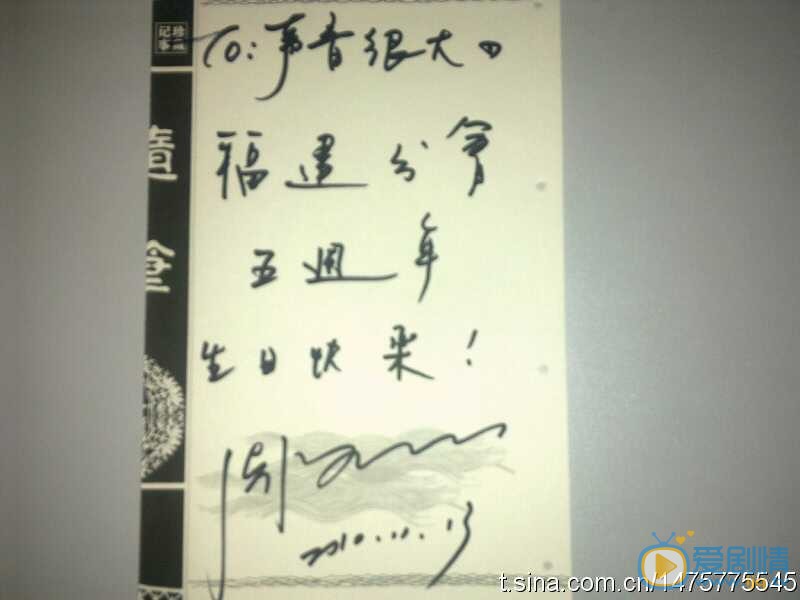 TO:声音很大的
福建分會
五週年
生日快樂!
2010.11.13
珍藏
记事
随笔
爱剧情
t.sina.com.cn/1475775545